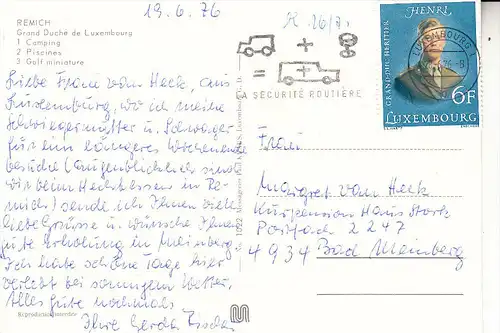 19.6.76
REMICH
Grand Duché de Luxembourg
1 Camping
2 Piscines
3 Golf miniature
Liebe Frau vom Heck, aus
Luxemburg, wo ich meine
Schwiegermutter u. Schwager
für ein längeres Wochenende
besuche (augenblicklich sind
wir beim Hechtessen in Re-
mich) sende ich Ihnen viele
liebe Grüsse u. wünsche Ihnen
gute Erholung in Meinberg.
Ich habe schöne Tage hier
verlebt bei sonnigem Wetter.
Alles gute nochmals
Ihre Gerda
Reproduction interdite
+
= +
SÉCURITÉ ROUTIÈRE
LUXEMBOURG
HENRI
GRAND-DUC HÉRITIER
6F
LUXEMBOURG
Frau
Margret vom Heck
Kurpension Haus Stork
Postfach 2247
4934 Bad Meinberg